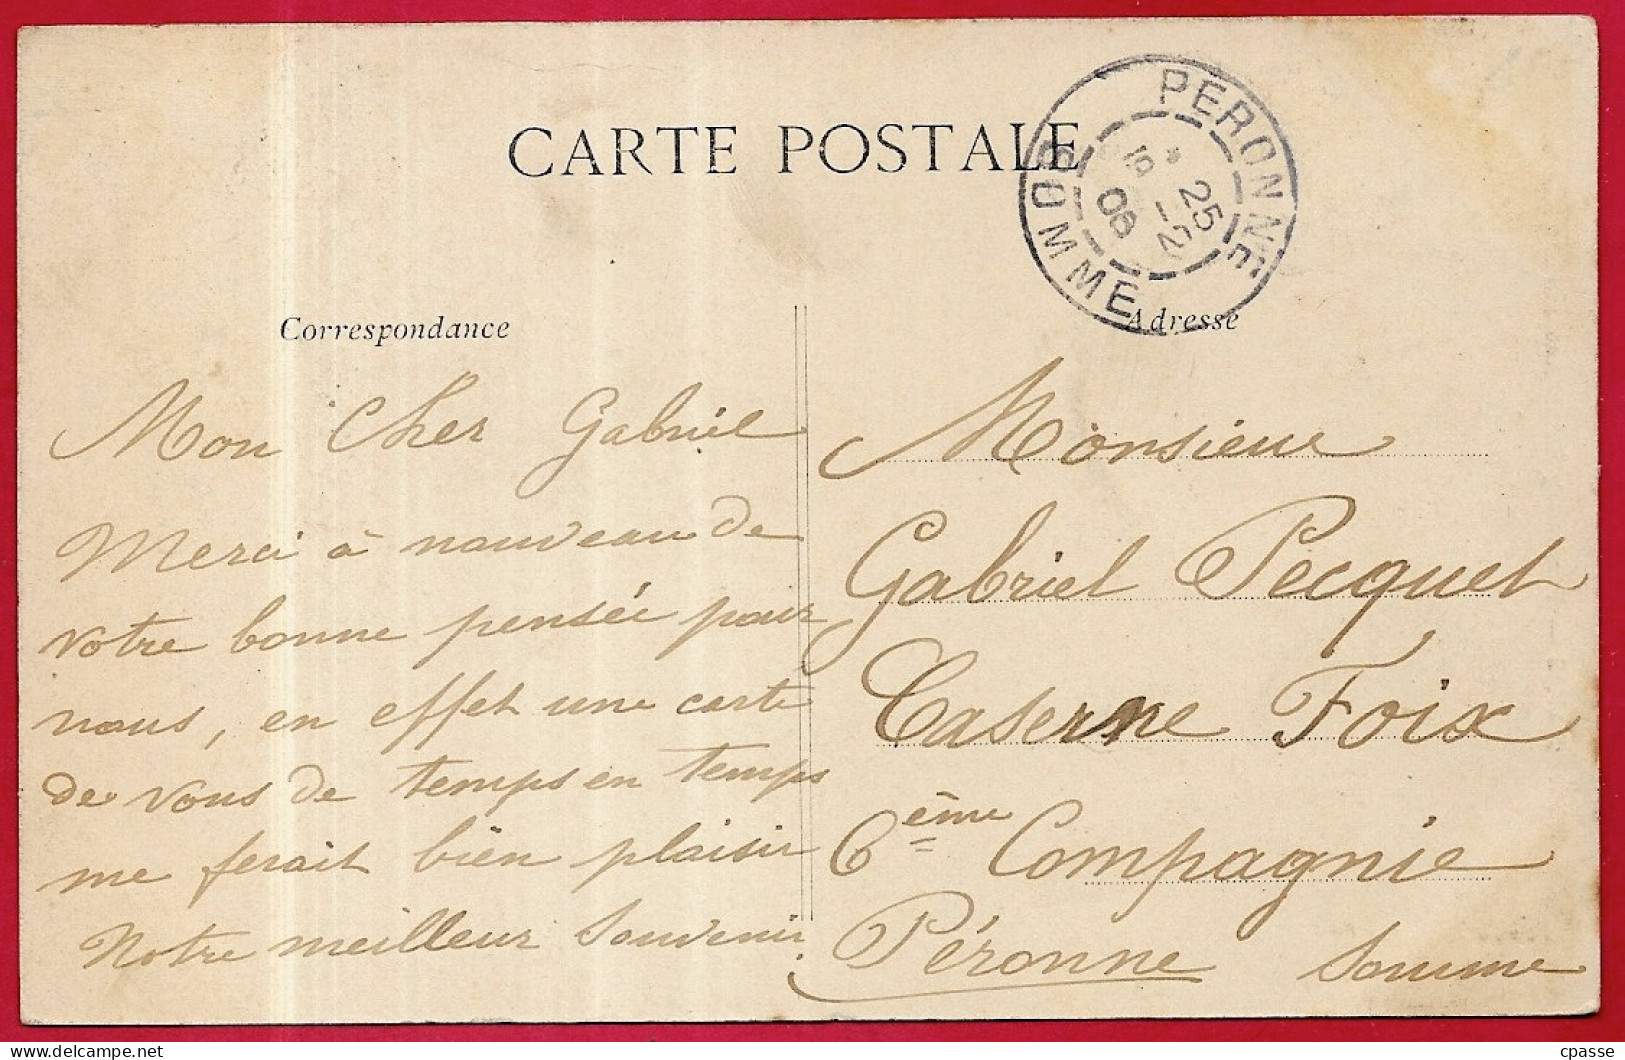 CARTE POSTALE
PERONNE
* 25
19 -2
08
SOMME
Correspondance
Mon Cher Gabriel
Merci à nouveau de
votre bonne pensée pour
nous, en effet une carte
de vous de temps en temps
me ferait bien plaisir
Notre meilleur Souvenir.
Adresse
Monsieur
Gabriel Pecquet
Caserne Foix
6ème Compagnie
Péronne Somme
cpasse
© delcampe.net